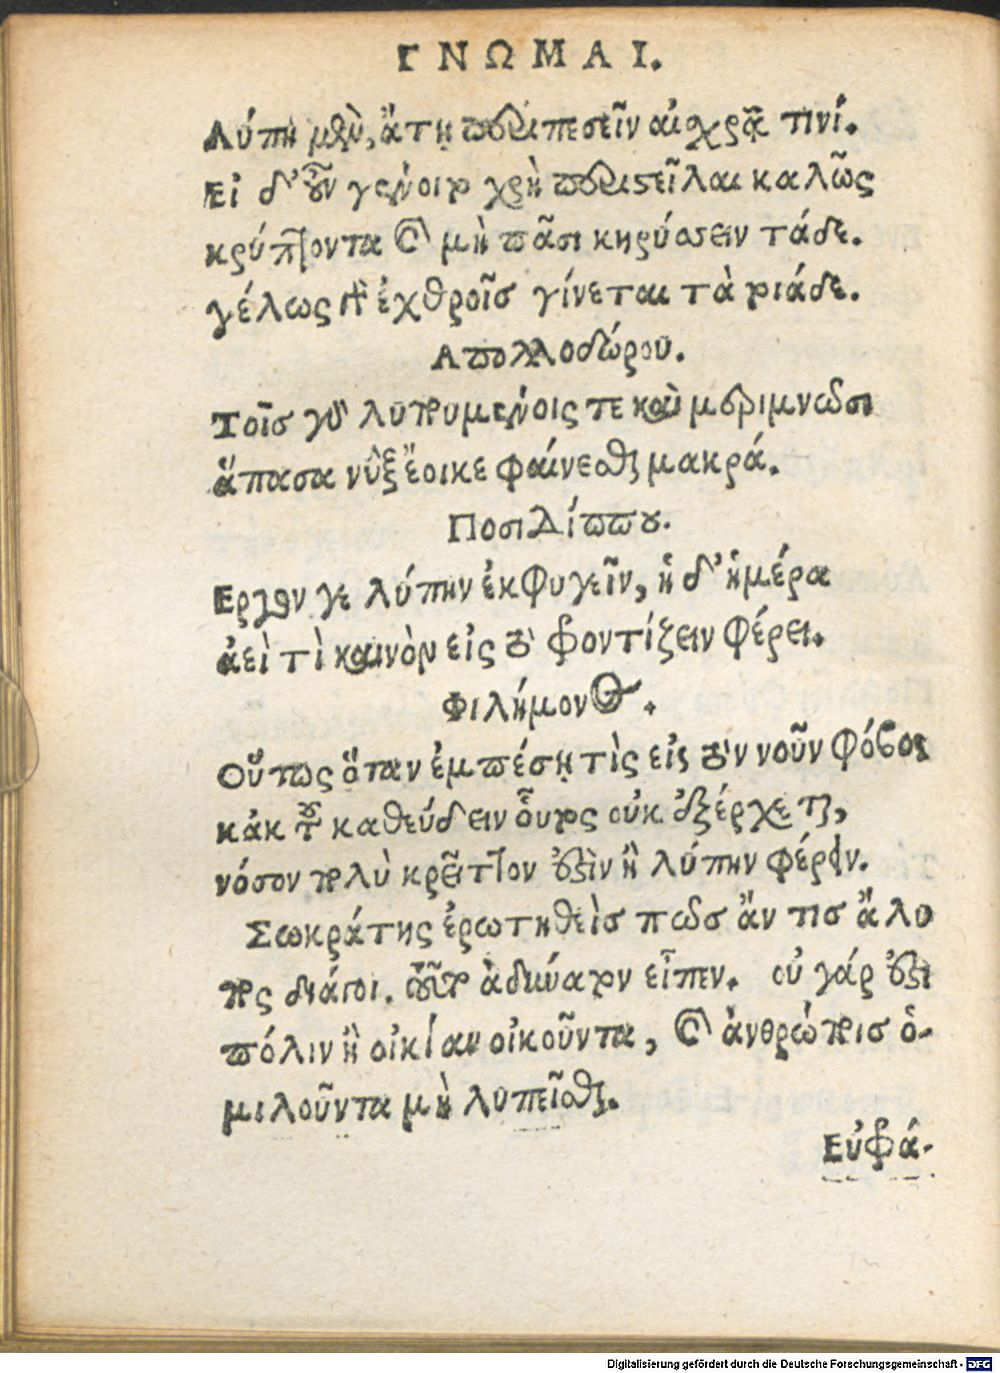 ΓΝΩΜΑΙ.
Λύπη μὲν, ἄτῃ περιπεσεῖν αἰσχρᾷ τινί.
Εἰ δ' οὖν γένοιτο χρὴ περιστεῖλαι καλῶς
κρύπτοντα καὶ μὴ πᾶσι κηρύσσειν τάδε.
γέλως γὰρ ἐχθροῖσ γίνεται τὰ τοιάδε.
Απολλοδώρου.
Τοῖσ γὰρ λυπουμένοις τε καὶ μεριμνῶσι
ἅπασα νὺξ ἔοικε φαίνεσθαι μακρά.
Ποσιδίππου.
Εργον γε λύπην ἐκφυγεῖν, ἡ δ' ἡμέρα
ἀεὶ τὶ καινὸν εἰς τὸ φροντίζειν φέρει.
Φιλήμονος.
Οὕτως ὅταν ἐμπέσῃ τὶς εἰς τὸν νοῦν φόβος
κἀκ τοῦ καθεύδειν οὗτος οὐκ ἐξέρχεται,
νόσον πολὺ κρεῖττον ἐστὶν ἢ λύπην φέρειν.
Σωκράτης ἐρωτηθεὶσ πῶσ ἄν τισ ἄλυ
πος διάγοι. τοῦτο ἀδύνατον εἶπεν. οὐ γάρ ἐστι
πόλιν ἢ οἰκίαν οἰκοῦντα, καὶ ἀνθρώποισ ὁ-
μιλοῦντα μὴ λυπεῖσθαι.
Εὐφρά-
Digitalisierung gefördert durch die Deutsche Forschungsgemeinschaft - DFG